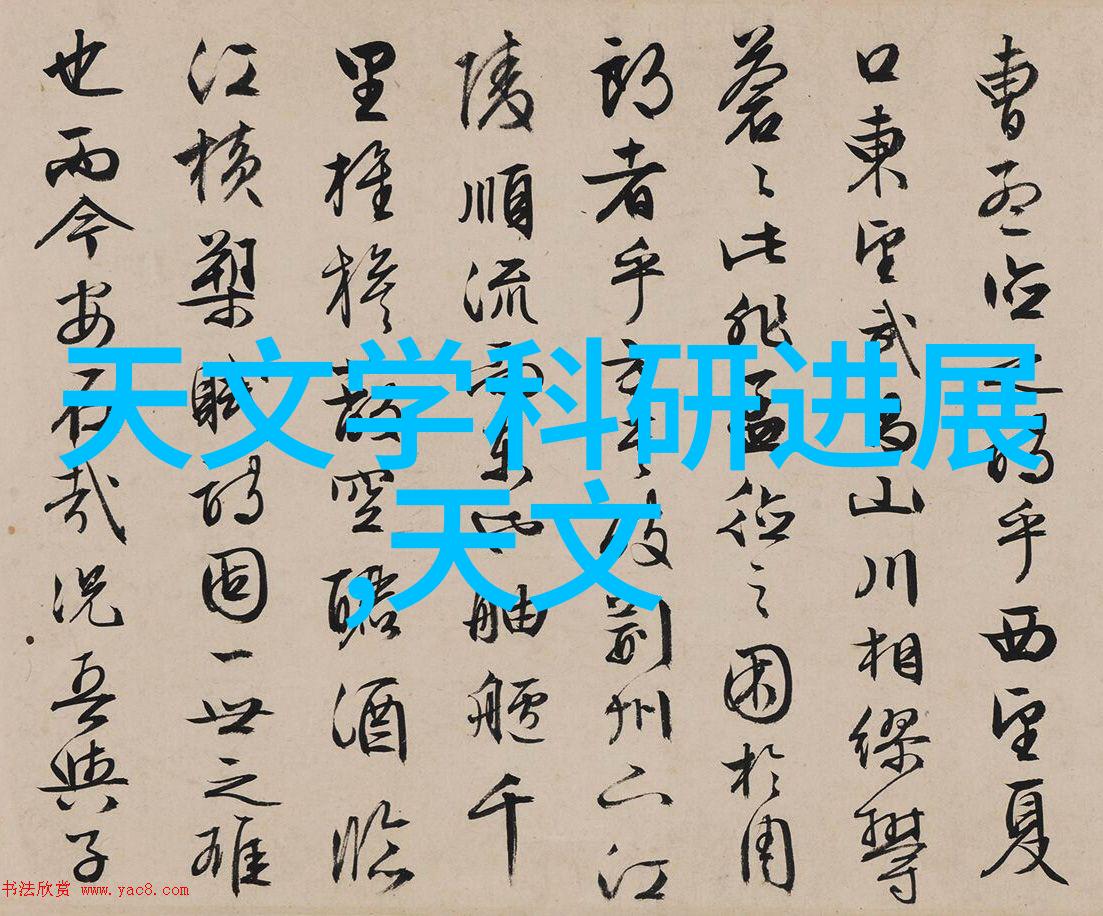 曹孟德之詩乎西望夏
口東望武昌山川相繆鬱
蒼〻此非孟德之困於周
郎者乎方其破荊州下江
陵順流而東也舳艫千
里旌旗蔽空釃酒臨
江橫槊賦詩固一世之雄
也而今安在哉況吾與子
天文学科研进展
,天文
书法欣赏 www.yac8.com